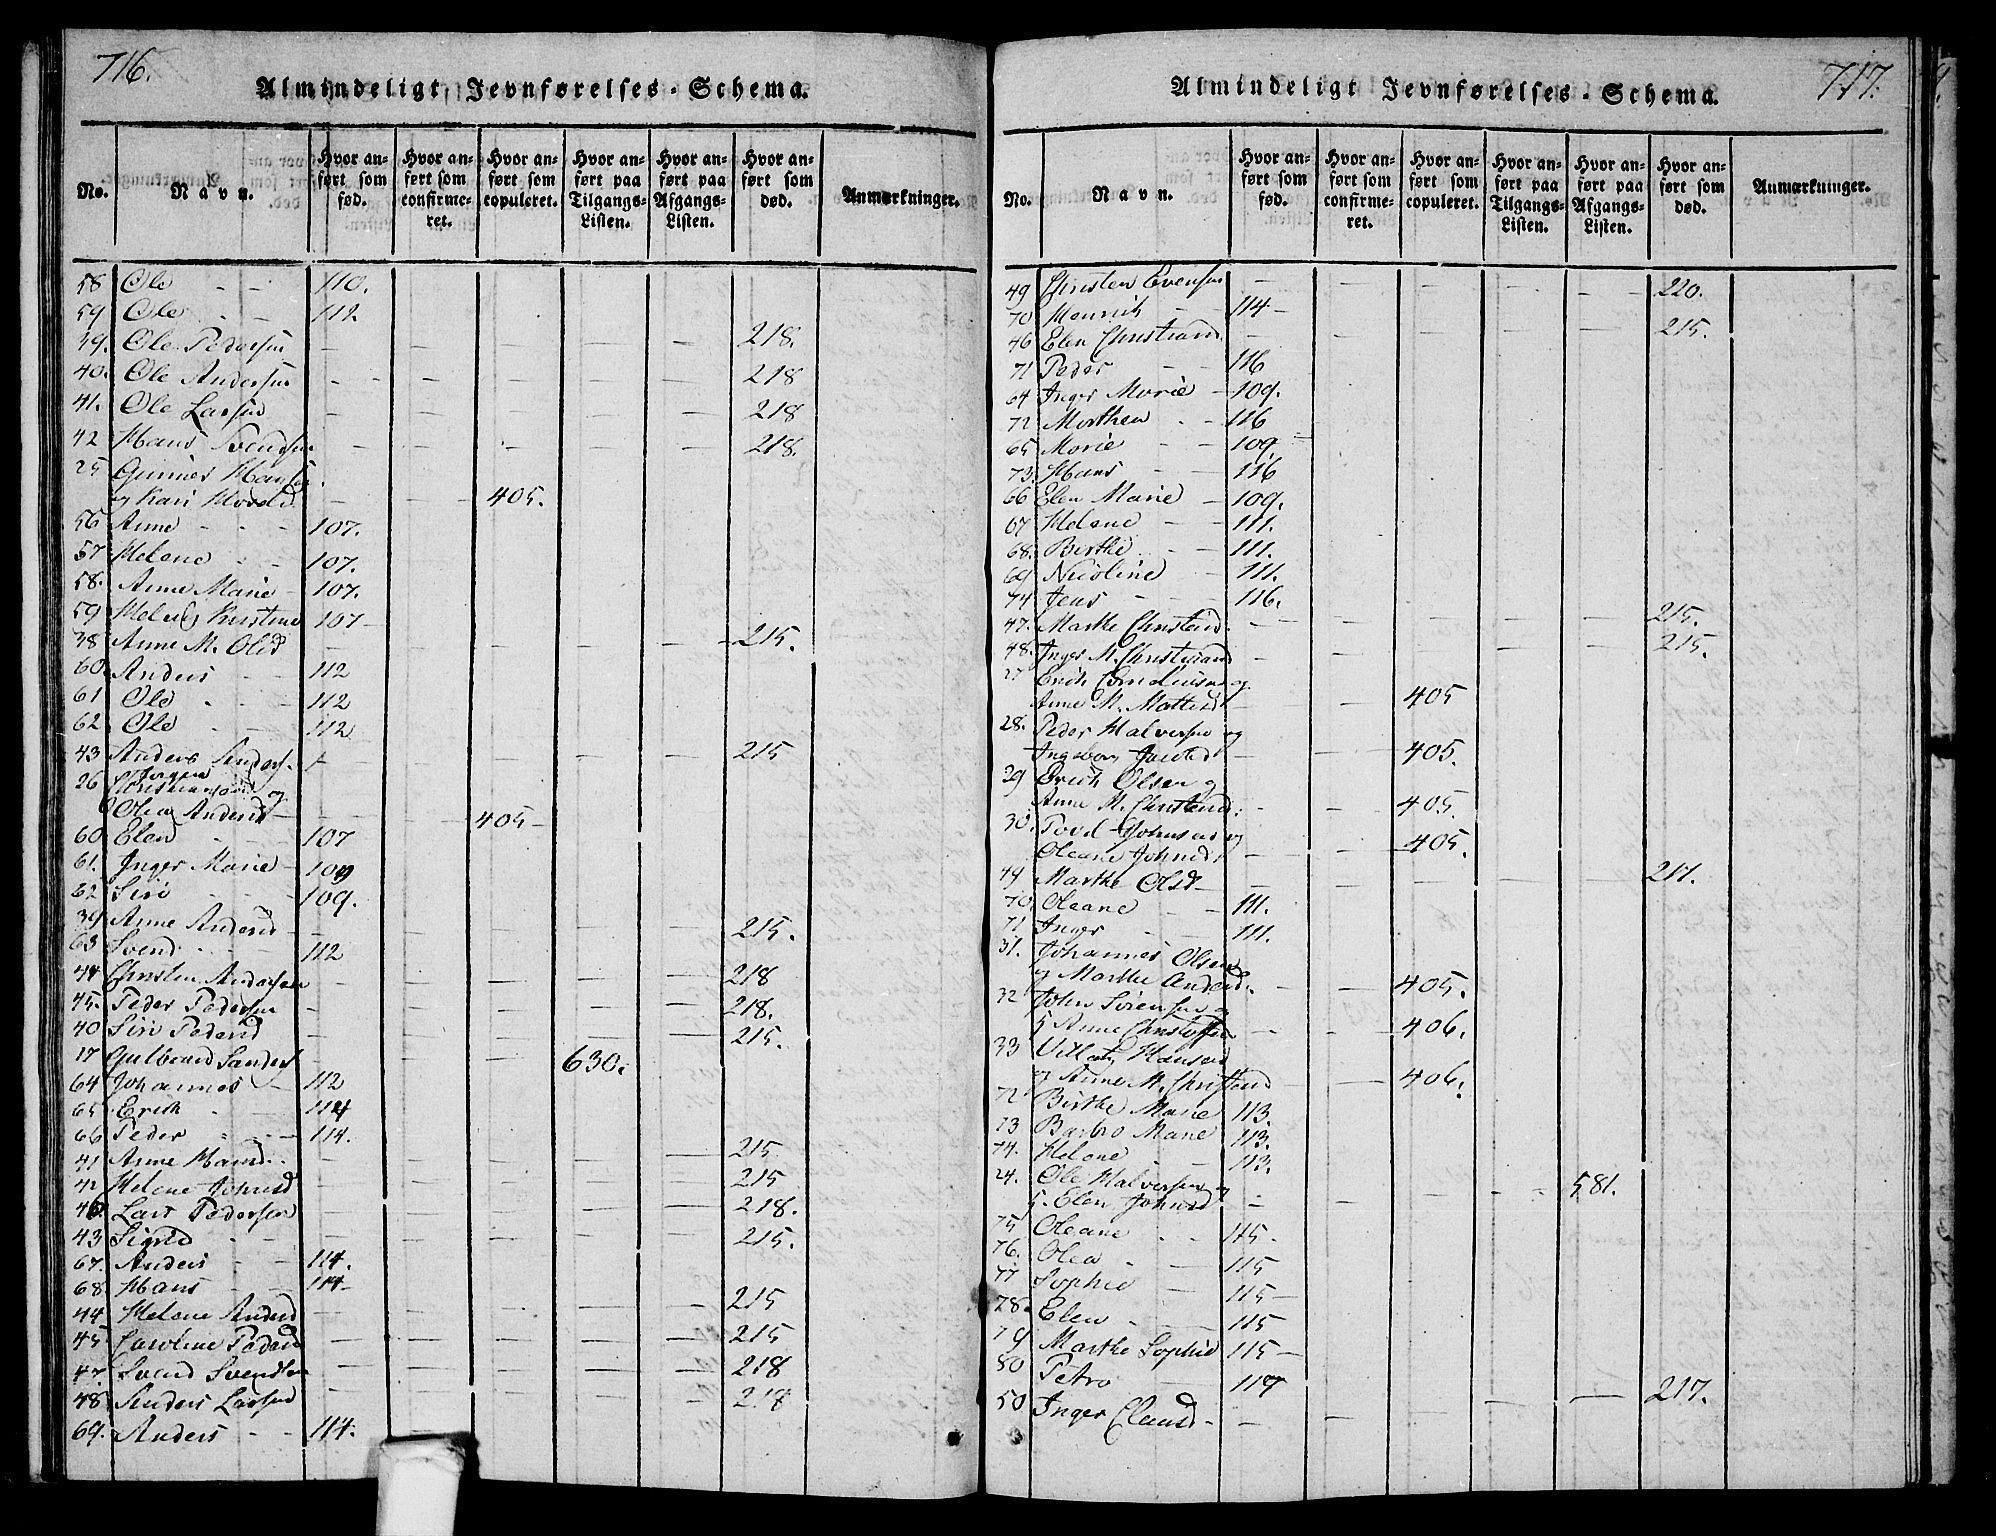 716.
Almindeligt Jevnførelses-Schema.
No. Navn. Hvor anført som fød. Hvor anført som confirmeret. Hvor anført som copuleret. Hvor anført paa Tilgangs-Listen. Hvor anført paa Afgangs-Listen. Hvor anført som død. Anmærkninger.
58 Ole - - 110.
59 Ole - - 112
39. Ole Pedersen - - - - - 218.
40. Ole Andersen - - - - - 218
41. Ole Larsen - - - - - 218
42 Hans Svendsen - - - - - 218.
25 Gunner Hansen
og Kari - - 405.
56 Anne - - 107.
57 Helene - 107.
58. Anne Marie - 107.
59 Kirstine 107 -
38 Anne M. Olsd - - - - - 215.
60. Anders - - 112
61 Ole - - 112
62. Ole - - 112
43 Anders Anders. - - - - - 215
26 Christian og
Olea Andersd - - - 405 -
60. Elen - 107
61. Inger Marie - 109
62 Siri - - 109.
39 Anne Andersd - - - - - 215.
63. Svend - - 112
44 Christen Andersen - - - - - 218
45. Peder Pedersen - - - - - 218.
40 Siri Pedersd - - - - - 215.
17 Gulbrand - - - 630.
64 Johannes - 112
65 Erich - - 114
66 Peder - - 114.
41 Anne Hansd. - - - - - 215
42 Helene Johnsd - - - - - 215
46. Lars Pedersen - - - - - 218.
43 Sigrid - - - - - 215.
67. Anders - - 114.
68. Hans - - 114
44 Helene Andersd - - - - - 215
45 Caroline Pedersd - - - - - 215
47. Svend Svendsen - - - - - 218
48 Anders Larsen - - - - - 218
69. Anders - - 114.
717.
Almindeligt Jevnførelses-Schema.
No. Navn. Hvor anført som fød. Hvor anført som confirmeret. Hvor anført som copuleret. Hvor anført paa Tilgangs-Listen. Hvor anført paa Afgangs-Listen. Hvor anført som død. Anmærkninger.
49 Christen Evensen - - - - - 220.
70 Henrich - - 114 -
46 Elen Christiansd. - - - - - 215.
71 Peder - - 116
64 Inger Marie - 109.
72 Morthen - - 116
65 Marie - - 109.
73. Hans - - 116
66 Elen Marie - 109.
67 Helene - - 111.
68. Birthe - - 111.
69 Nicoline - 111.
74 Jens - - 116.
47. Marthe Christensd. - - - - - 215.
48. Inger M. Christiansd - - - - - 215.
27 Erich Corneliusen og
Anne M. - - 405
28. Peder Halversen og
Ingeborg - - 405.
29 Erich Olsen og
Anne M. Christensd: - - 405.
30. Povel Johnsen og
Oleane Johnsd. - - 405.
49 Marthe Olsd - - - - - 217.
70. Oleane - - 111.
71 Inger - - 111.
31. Johannes Olsen
og Marthe Andersd. - - 405.
32 John Sørensen
Anne - - 406.
33 Hansen
og Anne M. Christensd - - 406.
72 Birthe Marie 113.
73 Barbro Marie 113.
74. Helene - - 113.
24. Ole Halversen og
5. Elen Johnsd. - - - - 581.
75 Oleane - - 115.
76. Olea - - 115
77 Sophie - 115 -
78. Elen - - 115
79 Marthe Sophie 115 -
80 Petro - - 117
50 Inger Clausd - - - - - 217.